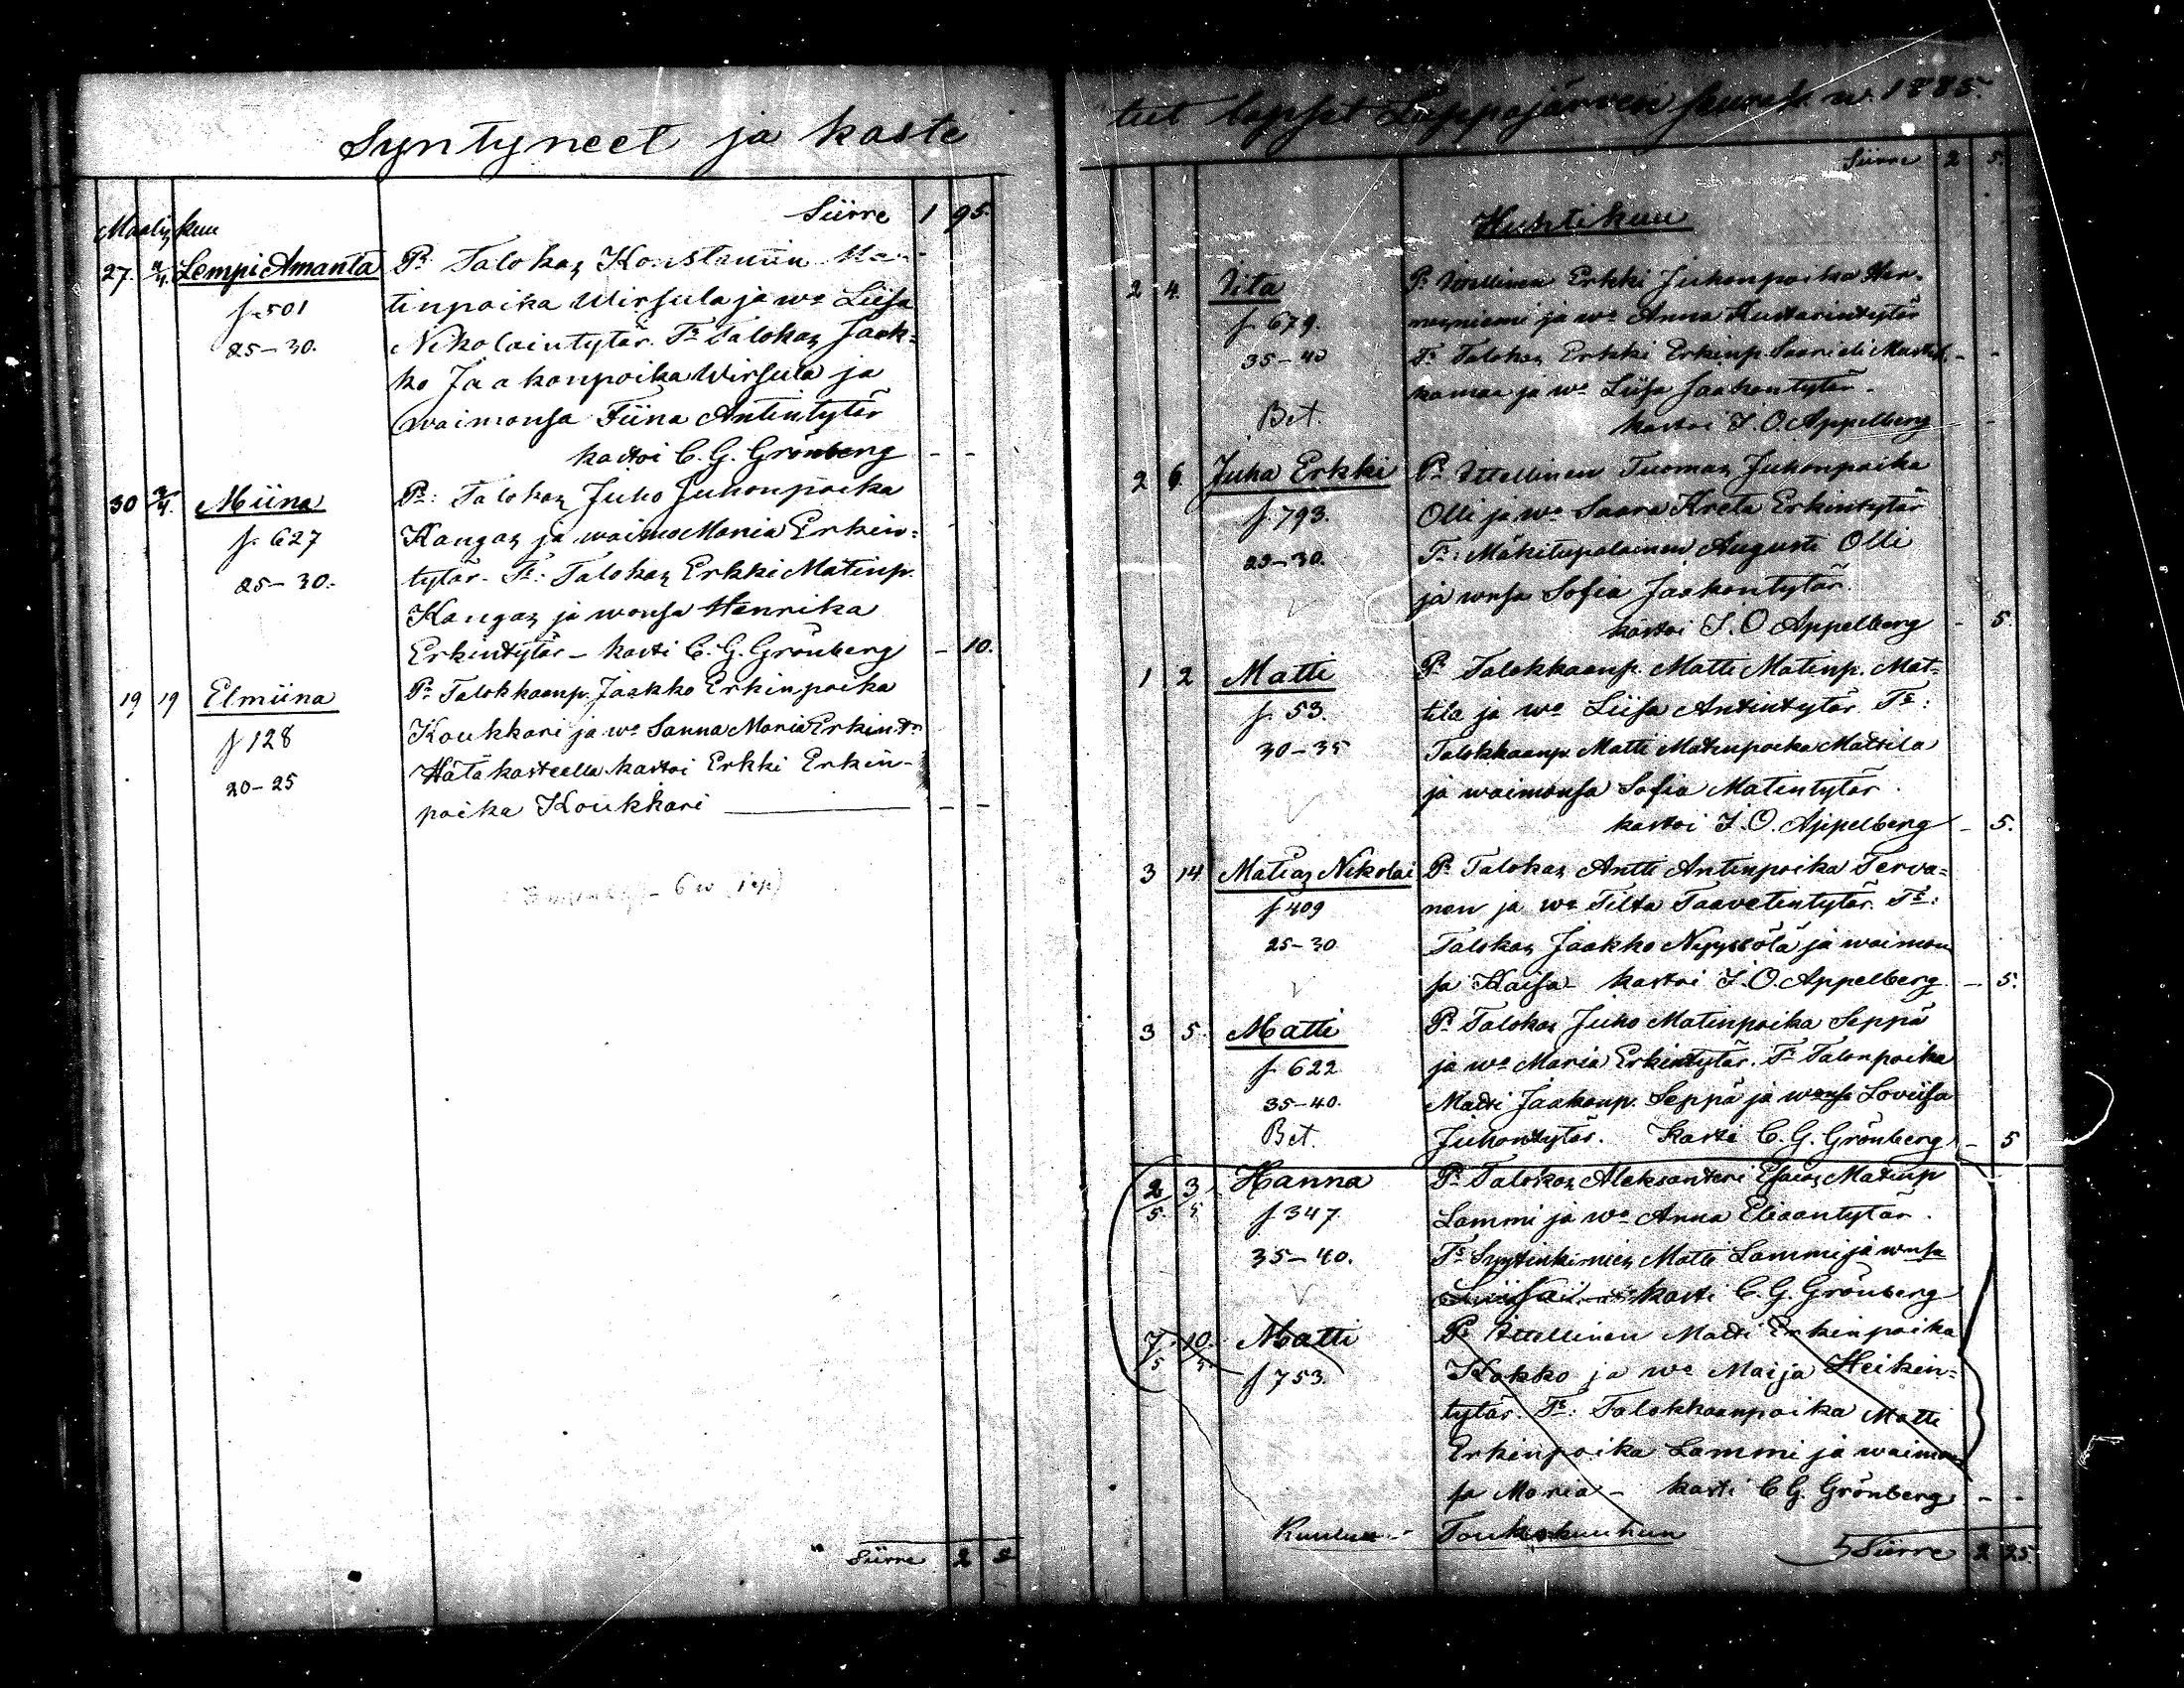 Syntyneet ja kaste
Siirre 1 95.
Maaliskuu
27. 4/4. Lempi Amanta P: Talokas Konstantiin
f. 501 tinpoika Wirsula ja wo Liisa
25-30. Nikolaintytär. T: Talokas Jaak-
ko Jaakonpoika Wirsula ja
waimonsa Fiina Antintytär
kastoi C. G. Grönberg - -
30 Miina P: Talokas Juho Juhonpoika
f. 627 Kangas ja waimo Maria Erkin-
25-30. tytär. T: Talokas Erkki Matinp.
Kangas ja wonsa Henrika
Erkintytär - kasti C. G. Grönberg - 10.
19 19 Elmiina P: Talokkaanp. Jaakko Erkinpoika
f 128 Koukkari ja wo Sanna Maria Erkint:r
20-25 Hätäkasteella kastoi Erkki Erkin-
poika Koukkari - -
Siirre 2 5
tut lapset Lappajärven seurak. w. 1885.
Siirre 2 5.
Huhtikuu
2 4. Iita P: Itsellinen Erkki Juhonpoika Her-
f. 679. nesniemi ja wo Anna Kustaantytär
35-40 T: Talokas Erkki Erkinp. Saari eli Mustik- - -
kamaa ja wo Liisa Jaakontytär.
Bet. kastoi I. O. Appelberg -
2 6. Juha Erkki P: Itsellinen Tuomas Juhonpoika
f. 793. Olli ja wo Saara Kreta Erkintytär
25-30. T: Mäkitupalainen Augusti Olli
ja wnsa Sofia Jaakontytär.
kastoi I. O Appelberg - 5.
1 2 Matti P: Talokkaanp. Matti Matinp. Mat-
f. 53. tila ja wo Liisa Antintytär. T:
30-35 Talokkaanp. Matti Matinpoika Mattila
ja waimonsa Sofia Matintytär.
kastoi I. O. Appelberg - 5.
3 14 Matias Nikolai P: Talokas Antti Antinpoika Terva-
f 409 nen ja wo Tilta Taavetintytär. T:
25-30 Talokas Jaakko Nyyssölä ja waimon
sa Kaisa kastoi I. O. Appelberg. - 5.
3 5. Matti P: Talokas Juho Matinpoika Seppä
f. 622 ja wo Maria Erkintytär. T: Talonpoika
35-40. Matti Jaakonp. Seppä ja wonsa Loviisa
Bet. Juhontytär. Kasti C. G. Grönberg - 5
2/5. 3/5 Hanna P: Talokas Aleksanteri Esaias Matinp
f. 347 Lammi ja wo Anna Eliaantytär.
35-40. T: Syytinkimies Matti Lammi ja wnsa
Liisa kasti C. G. Grönberg
7/5 10/5 Matti P: Itsellinen Matti Erkinpoika
f 753. Kokko ja wo Maija Heikin-
tytär. T: Talokkaanpoika Matti
Erkinpoika Lammi ja waimon
sa Maria - kasti C G. Grönberg - -
Kuuluu Toukokuuhun
5 Siirre 2 25.